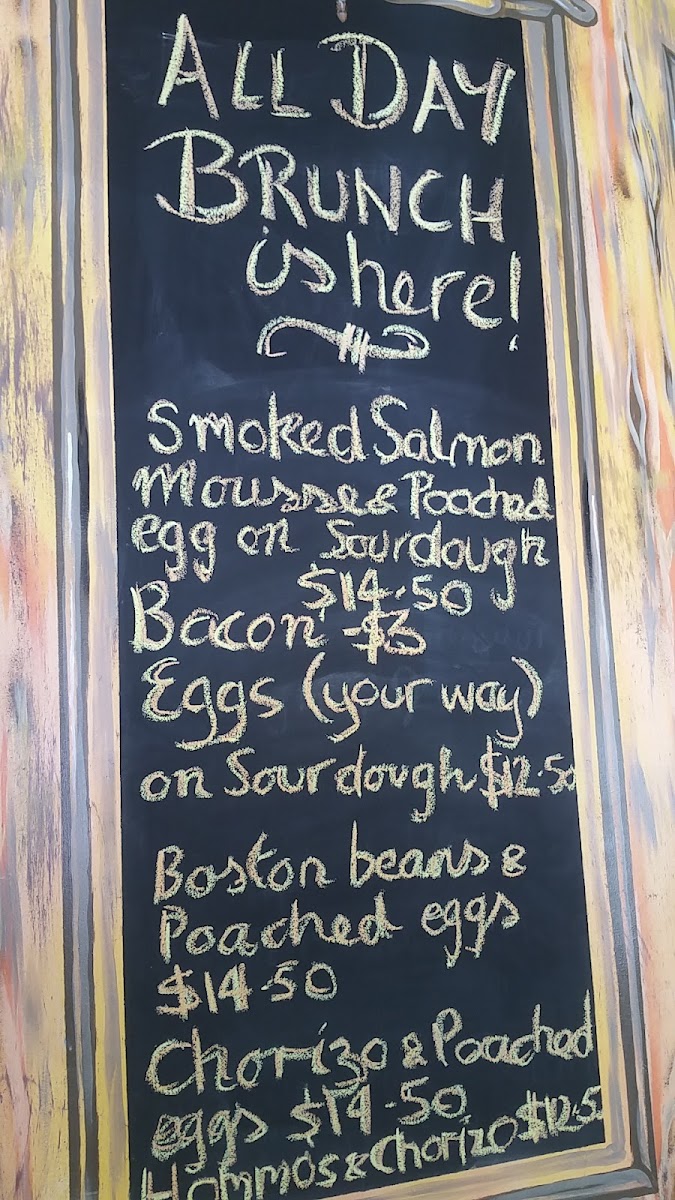 ALL DAY
BRUNCH
is here!
Smoked Salmon
Mousse & Poached
egg on Sourdough
$14.50
Bacon - $3
Eggs (your way)
on Sourdough $12.50
Boston beans &
Poached eggs
$14.50
Chorizo & Poached
eggs $14.50
Hommos & Chorizo $12.5